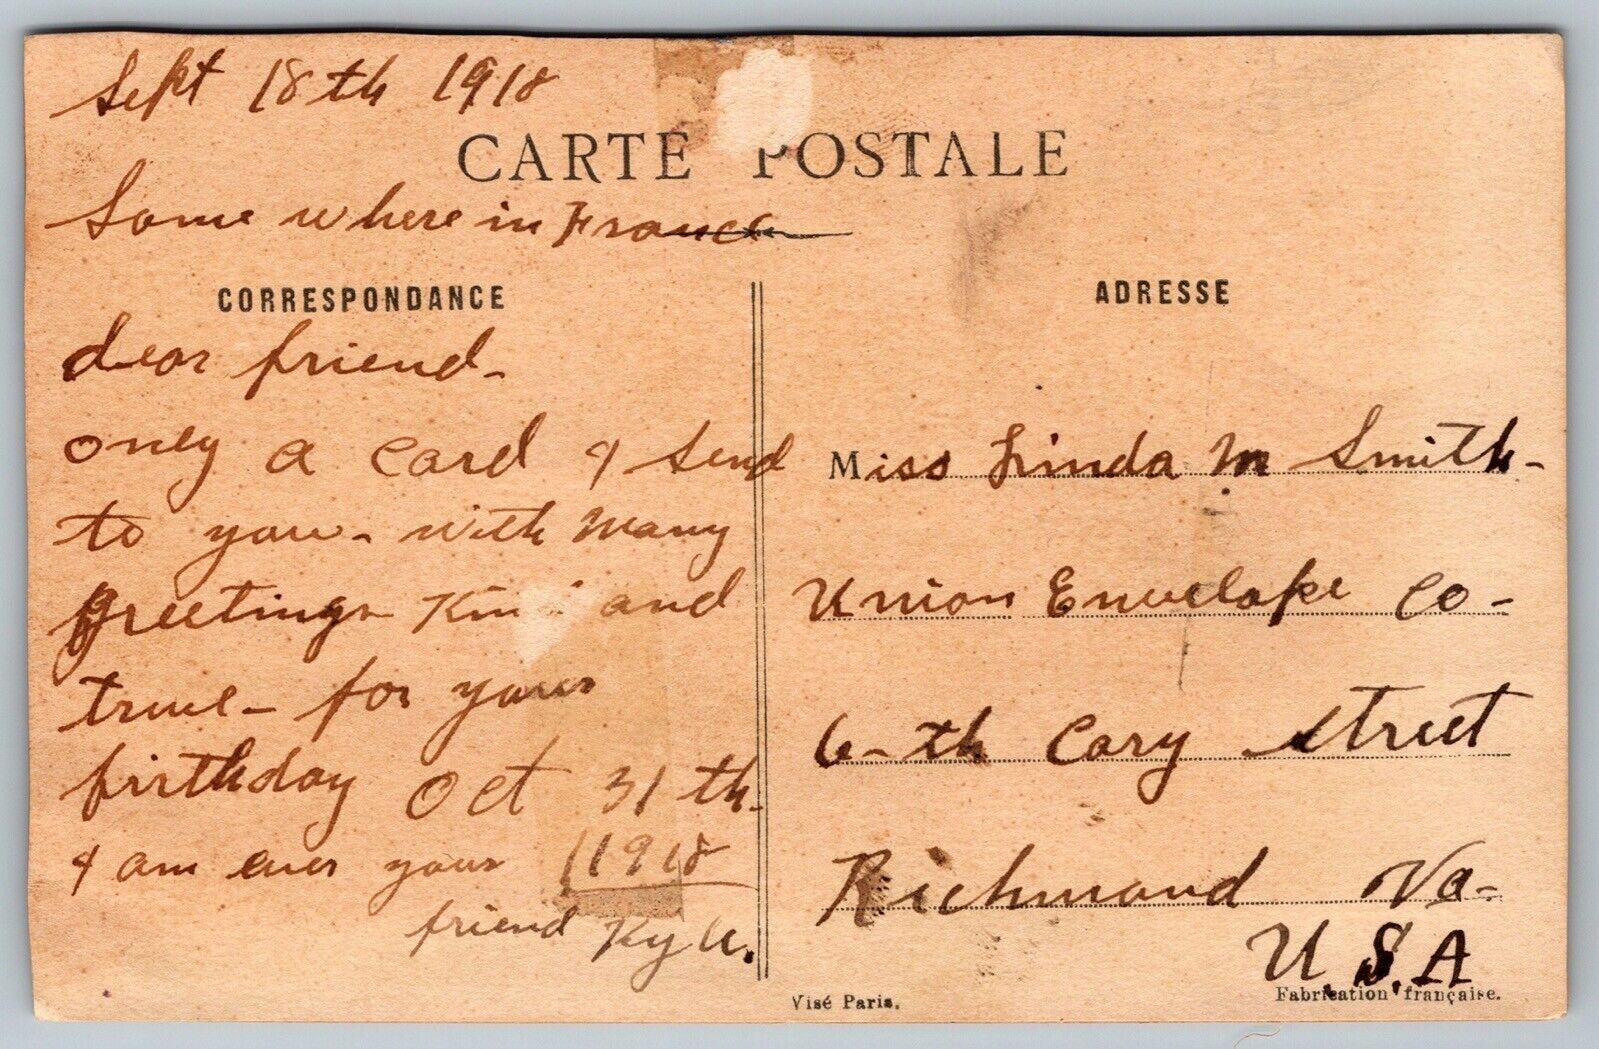 Sept 18th 1918
CARTE POSTALE
Some where in France
CORRESPONDANCE
dear friend-
only a card I send
to you- with many
greetings and
true- for your
birthday Oct 31th-
1918
I am ever your
friend
ADRESSE
Miss Linda M Smith-
Union Envelope Co-
6-th Cary street
Richmond Va-
U.S.A
Visé Paris.
Fabrication française.